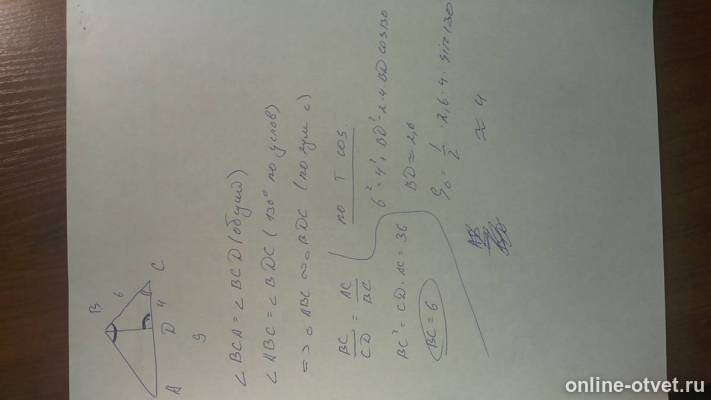 B
6
C
4
D
A
9
∠BCA = ∠BCD (общий)
∠ABC = ∠BDC (130° по услов)
=> △ABC ∼ △BDC (по 2ум ∠)
BC/CD = AC/BC
BC² = CD · AC = 36
BC = 6
по T cos
6² = 4² + BD² - 2·4·BD cos130
BD ≈ 2,6
S = 1/2 · 2,6 · 4 · sin130
≈ 4
online-otvet.ru